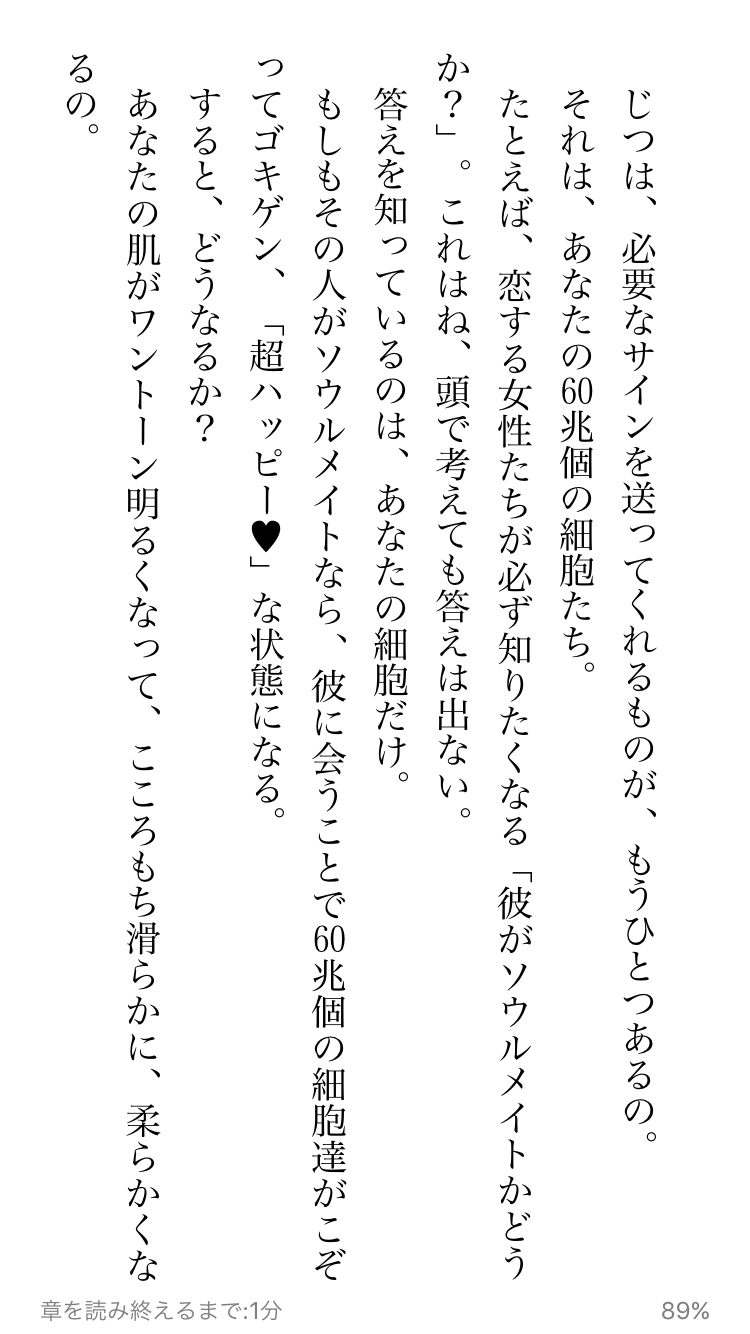 じつは、必要なサインを送ってくれるものが、もうひとつあるの。
それは、あなたの60兆個の細胞たち。
たとえば、恋する女性たちが必ず知りたくなる「彼がソウルメイトかどう
か？」。これはね、頭で考えても答えは出ない。
答えを知っているのは、あなたの細胞だけ。
もしもその人がソウルメイトなら、彼に会うことで60兆個の細胞達がこぞ
ってゴキゲン、「超ハッピー♥」な状態になる。
すると、どうなるか？
あなたの肌がワントーン明るくなって、こころもち滑らかに、柔らかくな
るの。
章を読み終えるまで:1分
89%